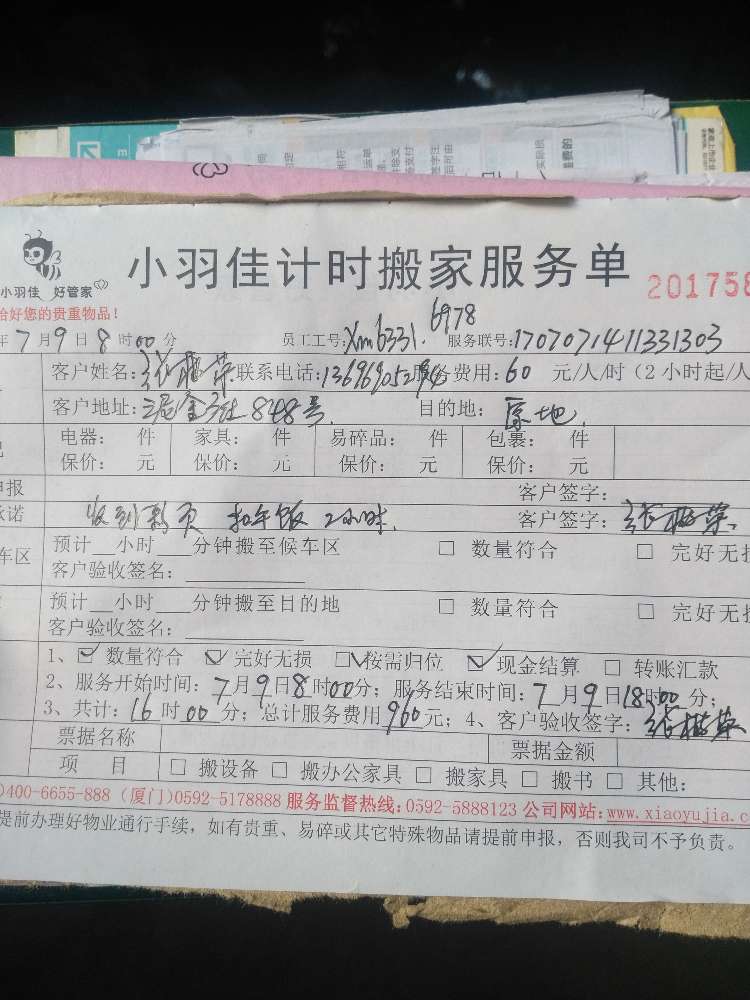 小羽佳 好管家
小羽佳计时搬家服务单
201758
合好您的贵重物品！
年7月9日8时00分 员工工号：Xm6331. 6978 服务联号：1707071411331303
客户姓名： 联系电话：服务费用：60 元/人/时（2小时起/人
客户地址： 848号 目的地：原地
电器： 件 家具： 件 易碎品： 件 包裹： 件
保价： 元 保价： 元 保价： 元 保价： 元
申报 客户签字：
承诺 收到 扣午饭 2小时 客户签字：
车区 预计__小时___分钟搬至候车区 □ 数量符合 □ 完好无损
客户验收签名：
预计__小时___分钟搬至目的地 □ 数量符合 □ 完好无损
客户验收签名：
1、☑ 数量符合 ☑ 完好无损 ☑ 按需归位 ☑ 现金结算 □ 转账汇款
2、服务开始时间：7月9日8时00分；服务结束时间：7月9日18时00分；
3、共计：16时00分；总计服务费用960元；4、客户验收签字：
票据名称 票据金额
项 目 □ 搬设备 □ 搬办公家具 □ 搬家具 □ 搬书 □ 其他：
)400-6655-888（厦门)0592-5178888 服务监督热线：0592-5888123 公司网站：www.xiaoyujia.c
提前办理好物业通行手续，如有贵重、易碎或其它特殊物品请提前申报，否则我司不予负责。